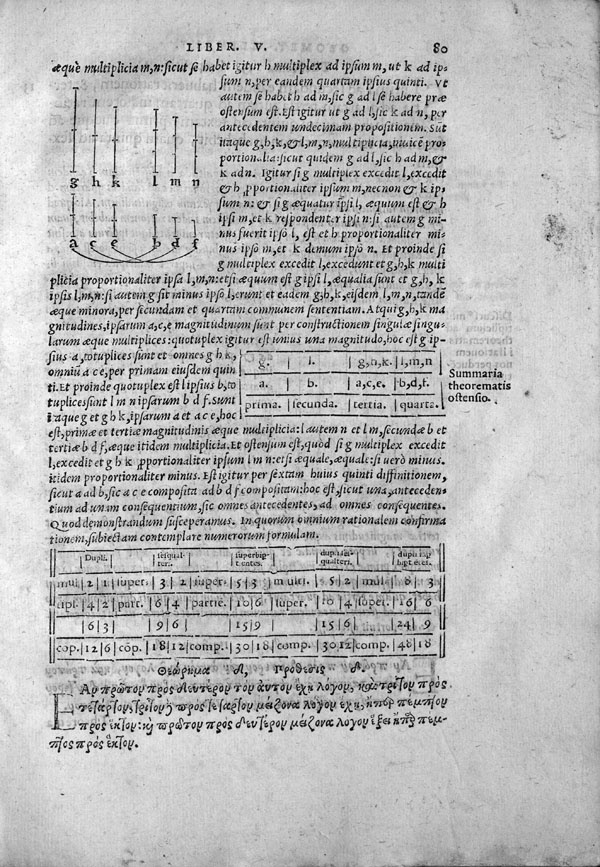 LIBER. V. 80
æque multiplicia m,n: sicut se habet igitur h multiplex ad ipsum m, ut k ad ip-
sum n, per eandem quartam ipsius quinti. Vt
autem se habet h ad m, sic g ad l se habere præ
ostensum est. Est igitur ut g ad l, sic k ad n, per
antecedentem undecimam propositionem. Sunt
itaque g,h,k, & l,m,n, multiplicia, inuicē pro-
portionalia: sicut quidem g ad l, sic h ad m, &
k ad n. Igitur si g multiplex excedit l, excedit
& h, pportionaliter ipsum m, necnon & k ip-
sum n: & si g æquatur ipsi l, æquum est & h
ipsi m, et k respondenter ipsi n: si autem g mi-
nus fuerit ipso l, est et h proportionaliter mi-
nus ipso m, et k demum ipso n. Et proinde si
g multiplex excedit l, excedunt et g,h,k multi
g h k l m n
a c e b d f
plicia proportionaliter ipsa l,m,n: etsi æquum est g ipsi l, æqualia sunt et g,h,k
ipsis l,m,n: si autem g sit minus ipso l, erunt et eadem g,h,k, eisdem l,m,n, tandē
æque minora, per secundam et quartam communem sententiam. Atqui g,h,k ma
gnitudines, ipsarum a,c,e magnitudinum sunt per constructionem singulæ singu-
larum æque multiplices: quotuplex igitur est unius una magnitudo, hoc est g ip-
sius a, totuplices sunt et omnes g h k,
omniū a c e, per primam eiusdem quin
ti. Et proinde quotuplex est l ipsius b, to
tuplices sunt l m n ipsarum b d f. sunt
itaque g et g h k, ipsarum a et a c e, hoc
g. | l. | g,h,k. | l,m,n
a. | b. | a,c,e. | b,d,f.
prima. | secunda. | tertia. | quarta.
Summaria
theorematis
ostensio.
est, primæ et tertiæ magnitudinis æque multiplicia: l autem et l m n, secundæ et b
tertiæ b d f, æque itidem multiplicia. Et ostensum est, quod si g multiplex excedit
l, excedit et g h k pportionaliter ipsum l m n: etsi æquale, æquale: si uerò minus.
itidem proportionaliter minus. Est igitur per sextam huius quinti diffinitionem,
sicut a ad b, sic a c e composita ad b d f compositam: hoc est, sicut una, anteceden-
tium ad unam consequentium, sic omnes antecedentes, ad omnes consequentes.
Quod demonstrandum susceperamus. In quorum omnium rationalem confirma
tionem, subiectam contemplare numerorum formulam.
Dupli. | sesqual-teri. | superbip-tientes. | dupl. | dupli
mul. | 2 | 1 | super. | 3 | 2 | super. | 5 | 3 | multi. | 5 | 2 | mul. | 8 | 3
tipl. | 4 | 2 | part. | 6 | 4 | partie. | 10 | 6 | super. | 10 | 4 | super. | 16 | 6
6 | 3 | 9 | 6 | 15 | 9 | 15 | 6 | 24 | 9
cōp. | 12 | 6 | cōp. | 18 | 12 | comp. | 30 | 18 | comp. | 30 | 12 | comp. | 48 | 18
Θεώρημα Πρόθεσις
Ἐὰν πρῶτον πρὸς δεύτερον τὸν αὐτὸν ἔχῃ λόγον, καὶ τρίτον πρὸς
τέταρτον, τρίτον δὲ πρὸς τέταρτον μείζονα λόγον ἔχῃ, ἤπερ πέμπτον
πρὸς ἕκτον: καὶ πρῶτον πρὸς δεύτερον μείζονα λόγον ἕξει ἤπερ πέμ-
πτος πρὸς ἕκτον.